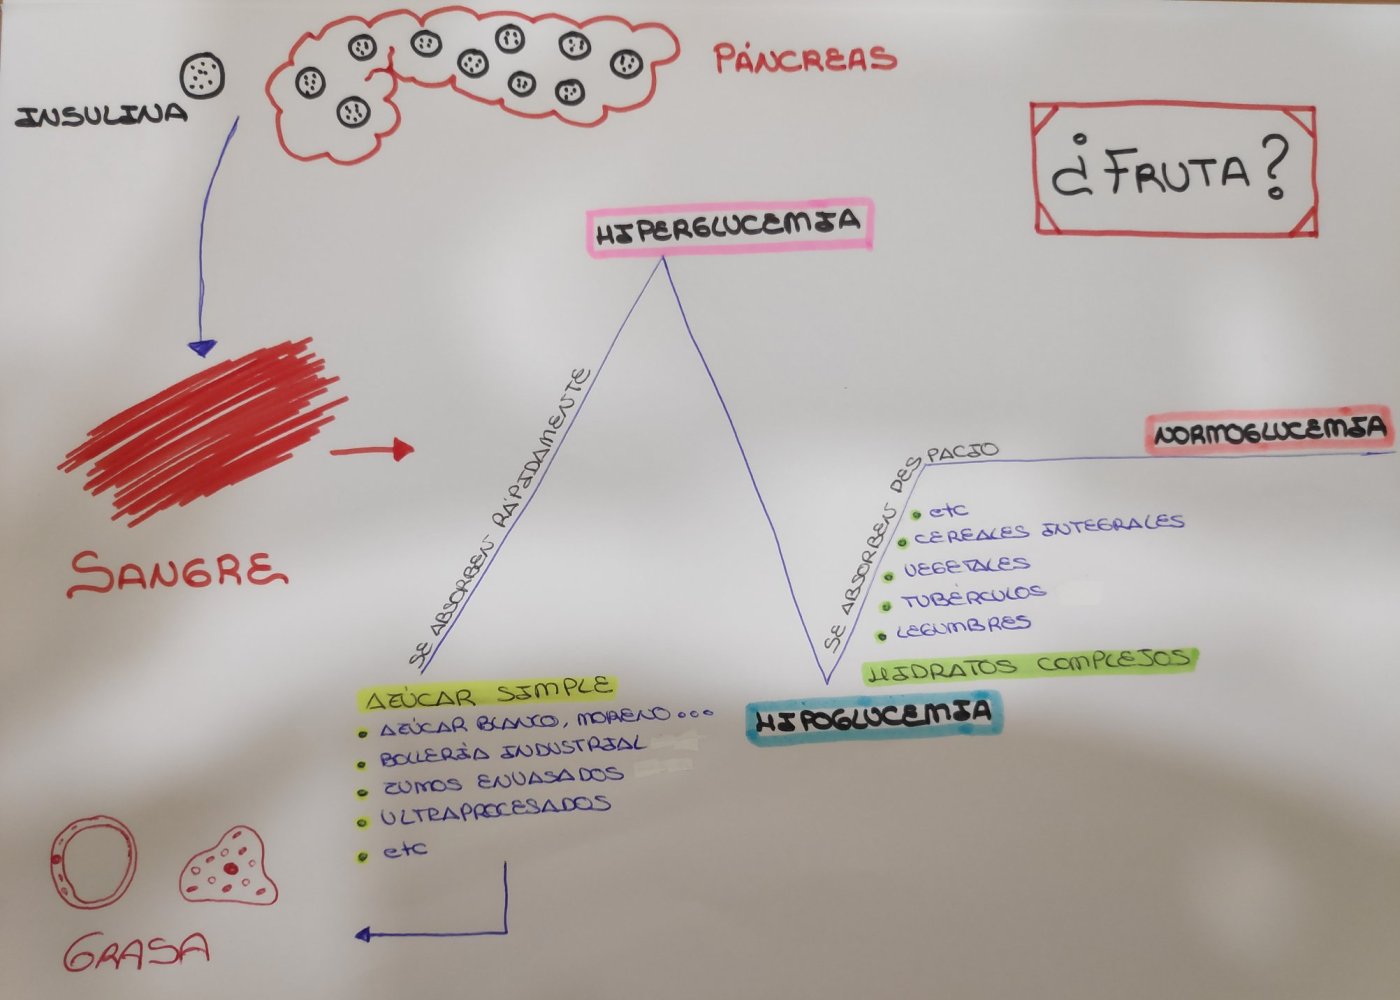 PÁNCREAS
INSULINA
¿FRUTA?
HIPERGLUCEMIA
SE ABSORBEN RÁPIDAMENTE
SE ABSORBEN DESPACIO
NORMOGLUCEMIA
• etc
• CEREALES INTEGRALES
• VEGETALES
• TUBÉRCULOS
• LEGUMBRES
HIDRATOS COMPLEJOS
SANGRE
AZÚCAR SIMPLE
• AZÚCAR BLANCO, MORENO...
• BOLLERÍA INDUSTRIAL
• ZUMOS ENVASADOS
• ULTRAPROCESADOS
• etc
HIPOGLUCEMIA
GRASA